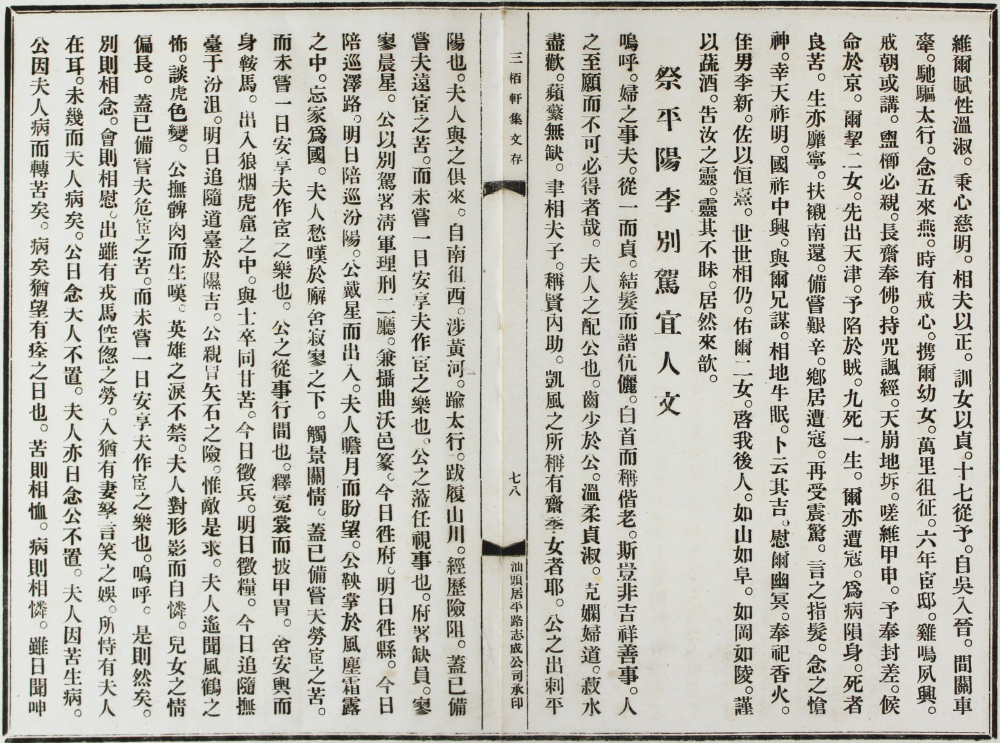 維爾賦性溫淑。秉心慈明。相夫以正。訓女以貞。十七從予。自吳入晉。間關車
牽。馳驅太行。念五來燕。時有戒心。携爾幼女。萬里徂征。六年宦邸。雞鳴夙興。
戒朝或講。盥櫛必親。長齋奉佛。持咒諷經。天崩地坼。嗟維甲申。予奉封差。候
命於京。爾挈二女。先出天津。予陷於賊。九死一生。爾亦遭寇。爲病隕身。死者
良苦。生亦靡寧。扶櫬南還。備嘗艱辛。鄉居遭寇。再受震驚。言之指髮。念之愴
神。幸天祚明。國祚中興。與爾兄謀。相地牛眠。卜云其吉。慰爾幽冥。奉祀香火。
侄男李新。佐以恒熹。世世相仍。佑爾二女。啓我後人。如山如阜。如岡如陵。謹
以蔬酒。告汝之靈。靈其不昧。居然來歆。
祭平陽李別駕宜人文
嗚呼。婦之事夫。從一而貞。結髮而諧伉儷。白首而稱偕老。斯豈非吉祥善事。人
之至願而不可必得者哉。夫人之配公也。齒少於公。溫柔貞淑。克嫻婦道。菽水
盡歡。蘋蘩無缺。聿相夫子。稱賢內助。凱風之所稱有齋季女者耶。公之出刺平
三栢軒集文存
七八
汕頭居平路志成公司承印
陽也。夫人與之俱來。自南徂西。涉黃河。踰太行。跋履山川。經歷險阻。蓋已備
嘗夫遠宦之苦。而未嘗一日安享夫作宦之樂也。公之蒞任視事也。府署缺員。寥
寥晨星。公以別駕署淸軍理刑二廳。兼攝曲沃邑篆。今日徃府。明日徃縣。今日
陪巡澤路。明日陪巡汾陽。公戴星而出入。夫人瞻月而盼望。公鞅掌於風塵霜露
之中。忘家爲國。夫人愁嘆於廨舍寂寥之下。觸景關情。蓋已備嘗夫勞宦之苦。
而未嘗一日安享夫作宦之樂也。公之從事行間也。釋冕裳而披甲冑。舍安輿而
身鞍馬。出入狼烟虎窟之中。與士卒同甘苦。今日徵兵。明日徵糧。今日追隨撫
臺于汾沮。明日追隨道臺於隰吉。公親冒矢石之險。惟敵是求。夫人遙聞風鶴之
怖。談虎色變。公撫髀肉而生嘆。英雄之淚不禁。夫人對形影而自憐。兒女之情
偏長。蓋已備嘗夫危宦之苦。而未嘗一日安享夫作宦之樂也。嗚呼。是則然矣。
別則相念。會則相慰。出雖有戎馬倥偬之勞。入猶有妻孥言笑之娛。所恃有夫人
在耳。未幾而夫人病矣。公日念夫人不置。夫人亦日念公不置。夫人因苦生病。
公因夫人病而轉苦矣。病矣猶望有痊之日也。苦則相恤。病則相憐。雖日聞呻